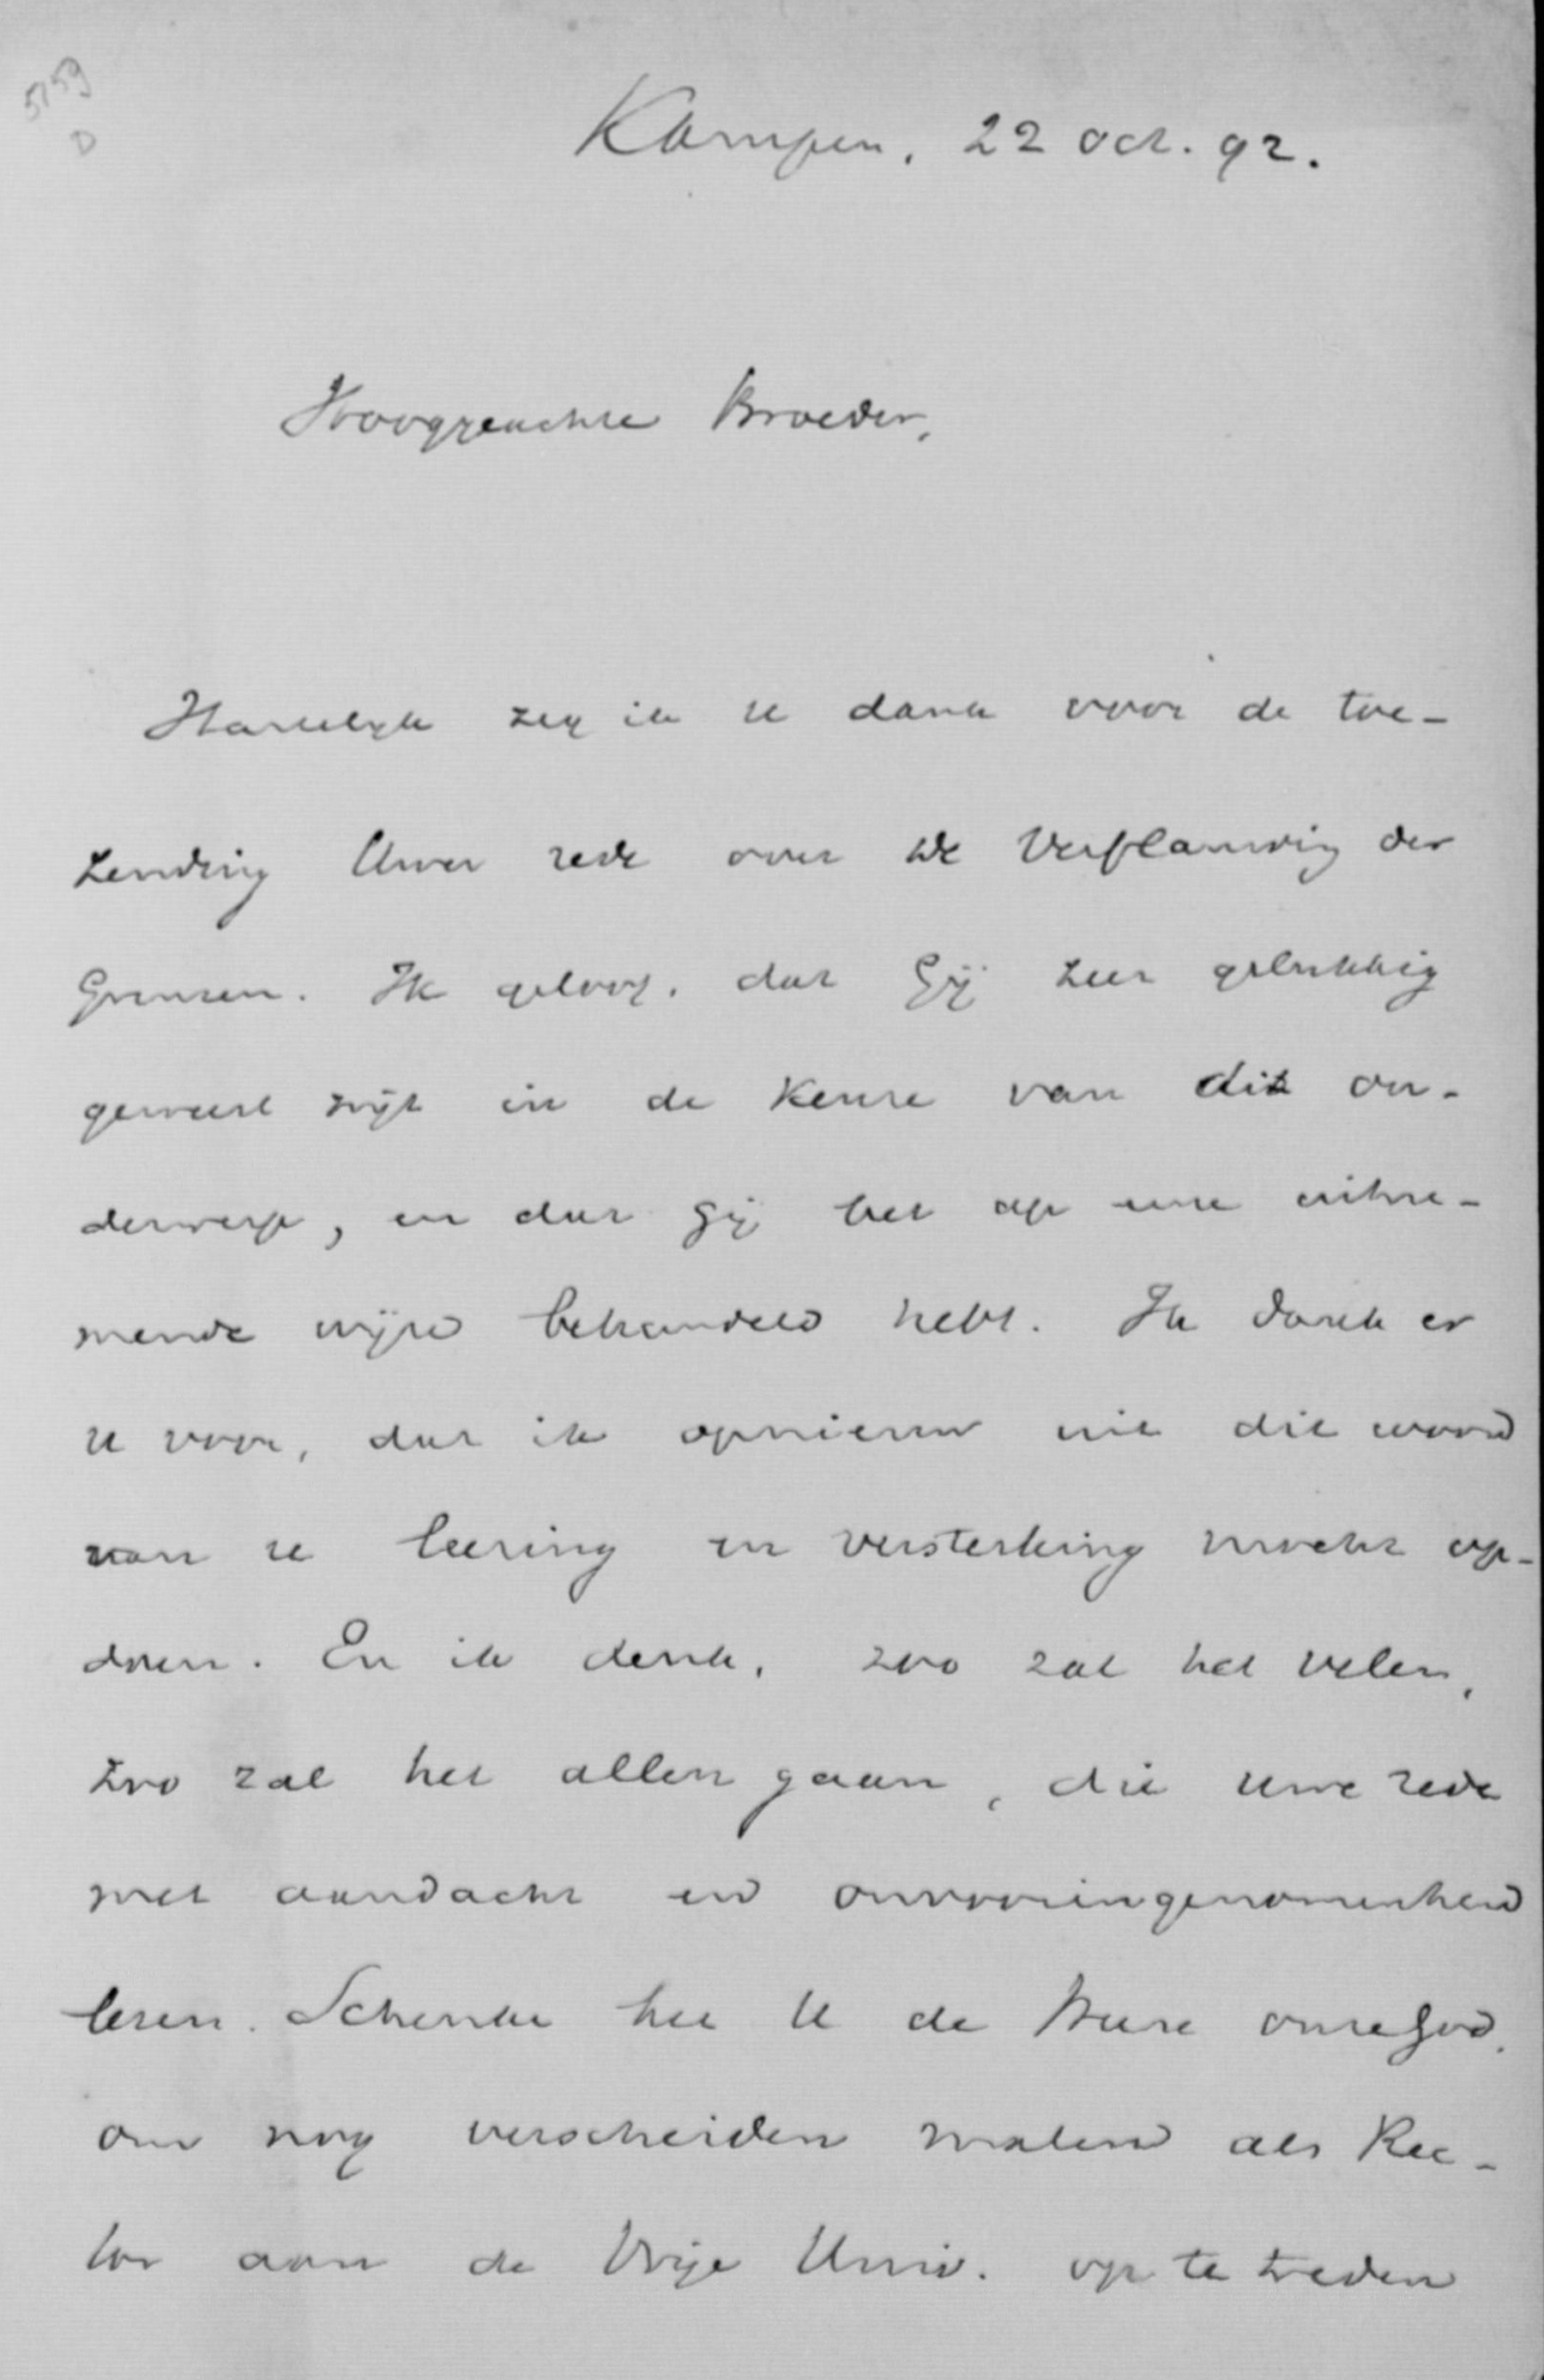 5159
D
Kampen, 22 Oct. 92.
Hooggeachte Broeder,
Hartelijk zeg ik U dank voor de toe-
zending Uwer rede over de Verflauwing der
Grenzen. Ik geloof, dat Gij zeer gelukkig
geweest zijt in de keuze van dit on-
derwerp, en dat Gij het op eene uitne-
mende wijze behandeld hebt. Ik dank er
U voor, dat ik opnieuw uit dit woord
van U leering en versterking mocht op-
doen. En ik denk, zoo zal het velen,
zoo zal het allen gaan, die Uwe rede
met aandacht en onvooringenomenheid
lezen. Schenke het U de Heere onze God,
om nog verscheiden malen als Rec-
tor aan de Vrije Univ. op te treden